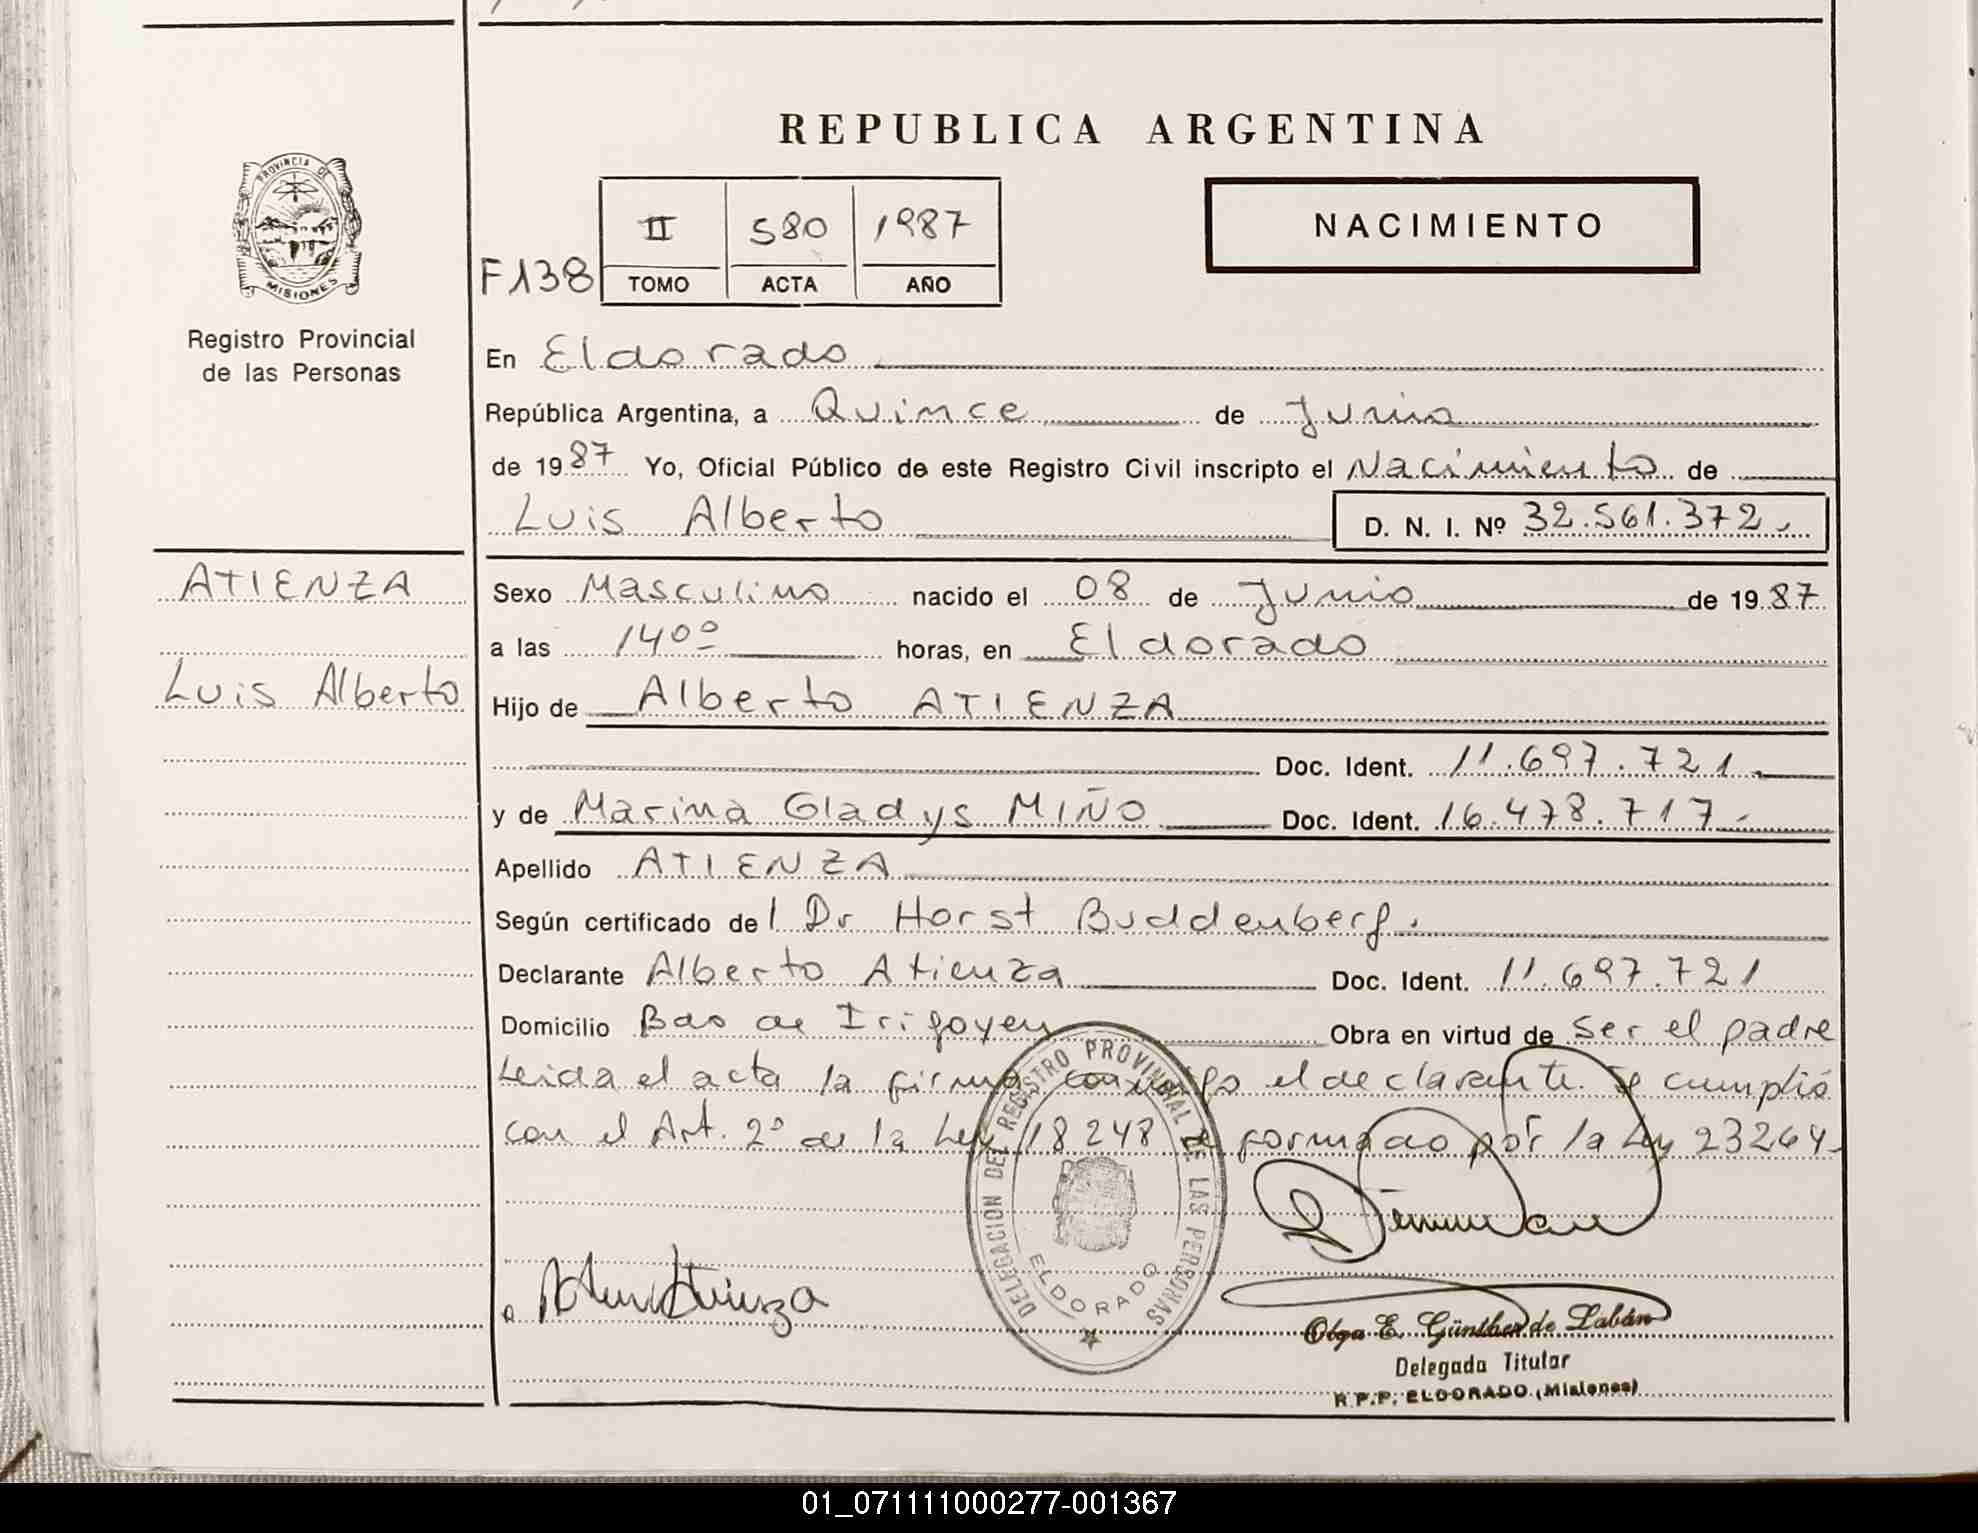 REPUBLICA ARGENTINA
PROVINCIA DE
MISIONES
Registro Provincial
de las Personas
F138
II 580 1987
TOMO ACTA AÑO
NACIMIENTO
En Eldorado
República Argentina, a Quince de Junio
de 1987 Yo, Oficial Público de este Registro Civil inscripto el Nacimiento de
Luis Alberto D. N. I. Nº 32.561.372.
ATIENZA
Luis Alberto
Sexo Masculino nacido el 08 de Junio de 1987
a las 14ºº horas, en Eldorado
Hijo de Alberto ATIENZA
Doc. Ident. 11.697.721.
y de Marina Gladys MIÑO Doc. Ident. 16.478.717.
Apellido ATIENZA
Según certificado del Dr Horst Buddenberg.
Declarante Alberto Atienza Doc. Ident. 11.697.721
Domicilio Bdo de Irigoyen Obra en virtud de ser el padre
Leida el acta la firma conmigo el declarante. Se cumplió
con el Art. 2º de la Ley 18248 reformado por la Ley 23264.
DELEGACION DEL REGISTRO PROVINCIAL DE LAS PERSONAS
ELDORADO
Olga E. Günther de Labán
Delegada Titular
R.P.P. ELDORADO (Misiones)
01_071111000277-001367